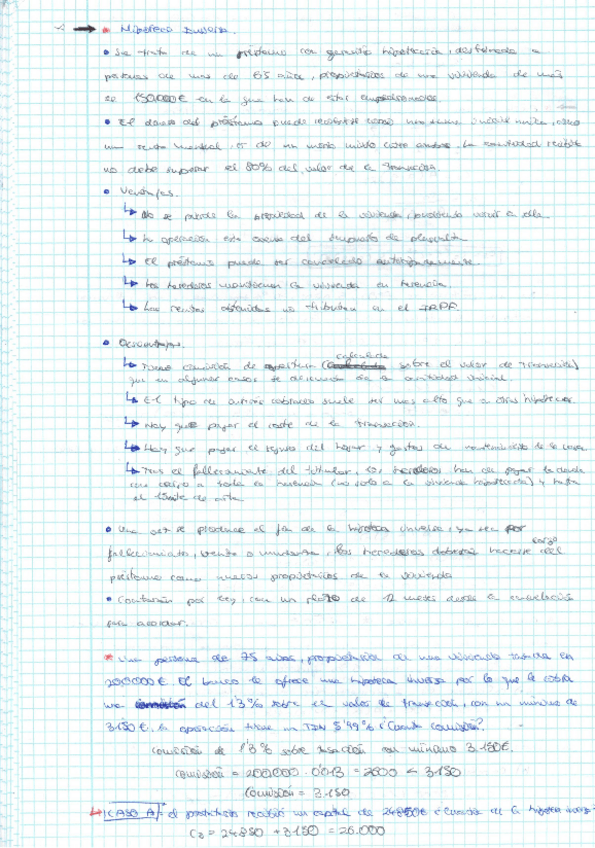 * Hipoteca Inversa.
• Se trata de un préstamo con garantía hipotecaria, destinado a
personas de mas de 65 años, propietarios de una vivienda de más
de 150.000€ en la que han de estar empadronados.
• El dinero del préstamo puede recibirse como una suma única, como
una renta mensual, o de un modo mixto entre ambas. La cantidad recibida
no debe superar el 80% del valor de la tasación.
• Ventajas.
↳ No se pierde la propiedad de la vivienda, pudiendo vivir a ella.
↳ La operación esta exenta del impuesto de plusvalía
↳ El préstamo puede ser cancelado anticipadamente.
↳ Los herederos mantienen la vivienda en herencia.
↳ Las rentas obtenidas no tributan en el IRPF.
• Desventajas.
↳ Tiene comisión de apertura (calculada sobre el valor de tasación)
que en algunos casos se descuenta de la cantidad inicial.
↳ El tipo de interés cobrado suele ser mas alto que a otras hipotecas.
↳ Hay que pagar el coste de la tasación.
↳ Hay que pagar el seguro del hogar y gastos de mantenimiento de la casa
↳ Tras el fallecimiento del titular, los herederos han de pagar la deuda
con cargo a toda la herencia (no solo a la vivienda hipotecada) y hasta
el límite de
• Una vez se produce el fin de la hipoteca inversa, ya sea por
fallecimiento, venta o mudanza, los herederos deberán hacerse cargo del
préstamo como nuevos propietarios de la vivienda
• Contarán por ley, con un plazo de 12 meses desde a cancelación
para acordar.
* Una persona de 75 años, propietaria de una vivienda tasada en
200.000€. El banco le ofrece una hipoteca inversa por la que le cobra
una del 1'3% sobre el valor de tasación, con un mínimo de
3.150€. La operación tiene un TIN 5'49% ¿Cuanto comisión?
Comisión de 1'3% sobre tasación con mínimo 3.150€.
Comisión = 200.000 · 0'013 = 2600 < 3.150
Comisión = 3.150
↳ CASO A: el propietario recibió un capital de 24.850€ ¿Cuantía de la hipoteca inversa?
C₀ = 24.850 + 3.150 = 28.000